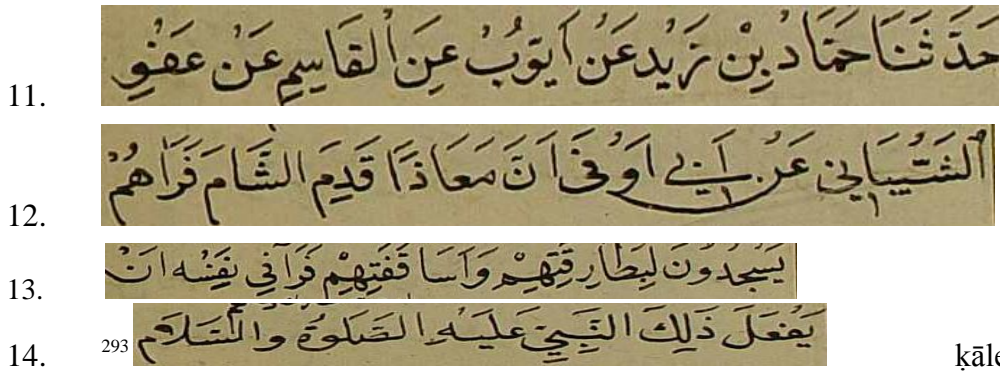 11. حَدَّثَنَا حَمَّادُ بْنِ زَيْد عَنْ اَيّوُبُ عَنِ اْلقَاسِمِ عَنْ عَفْوِ
12. اَلشَّيْبَانِي عَنْ اَبِي اَوْفَى اَنَّ مَعَاذًا قَدِمَ الشَّامَ فَرَاَهُمْ
13. يَسْجُدُونَ لِبَطَارِقَتِهِمْ وَاَسَاقِفَتِهِمْ فَرَآ فِي نَفْسِه اَنْ
14. يَفْعَلَ ذَلِكَ النَّبِيِّ عَلَيْهِ الصَّلَوةُ وَالسَّلَامُ 293 ḳāle